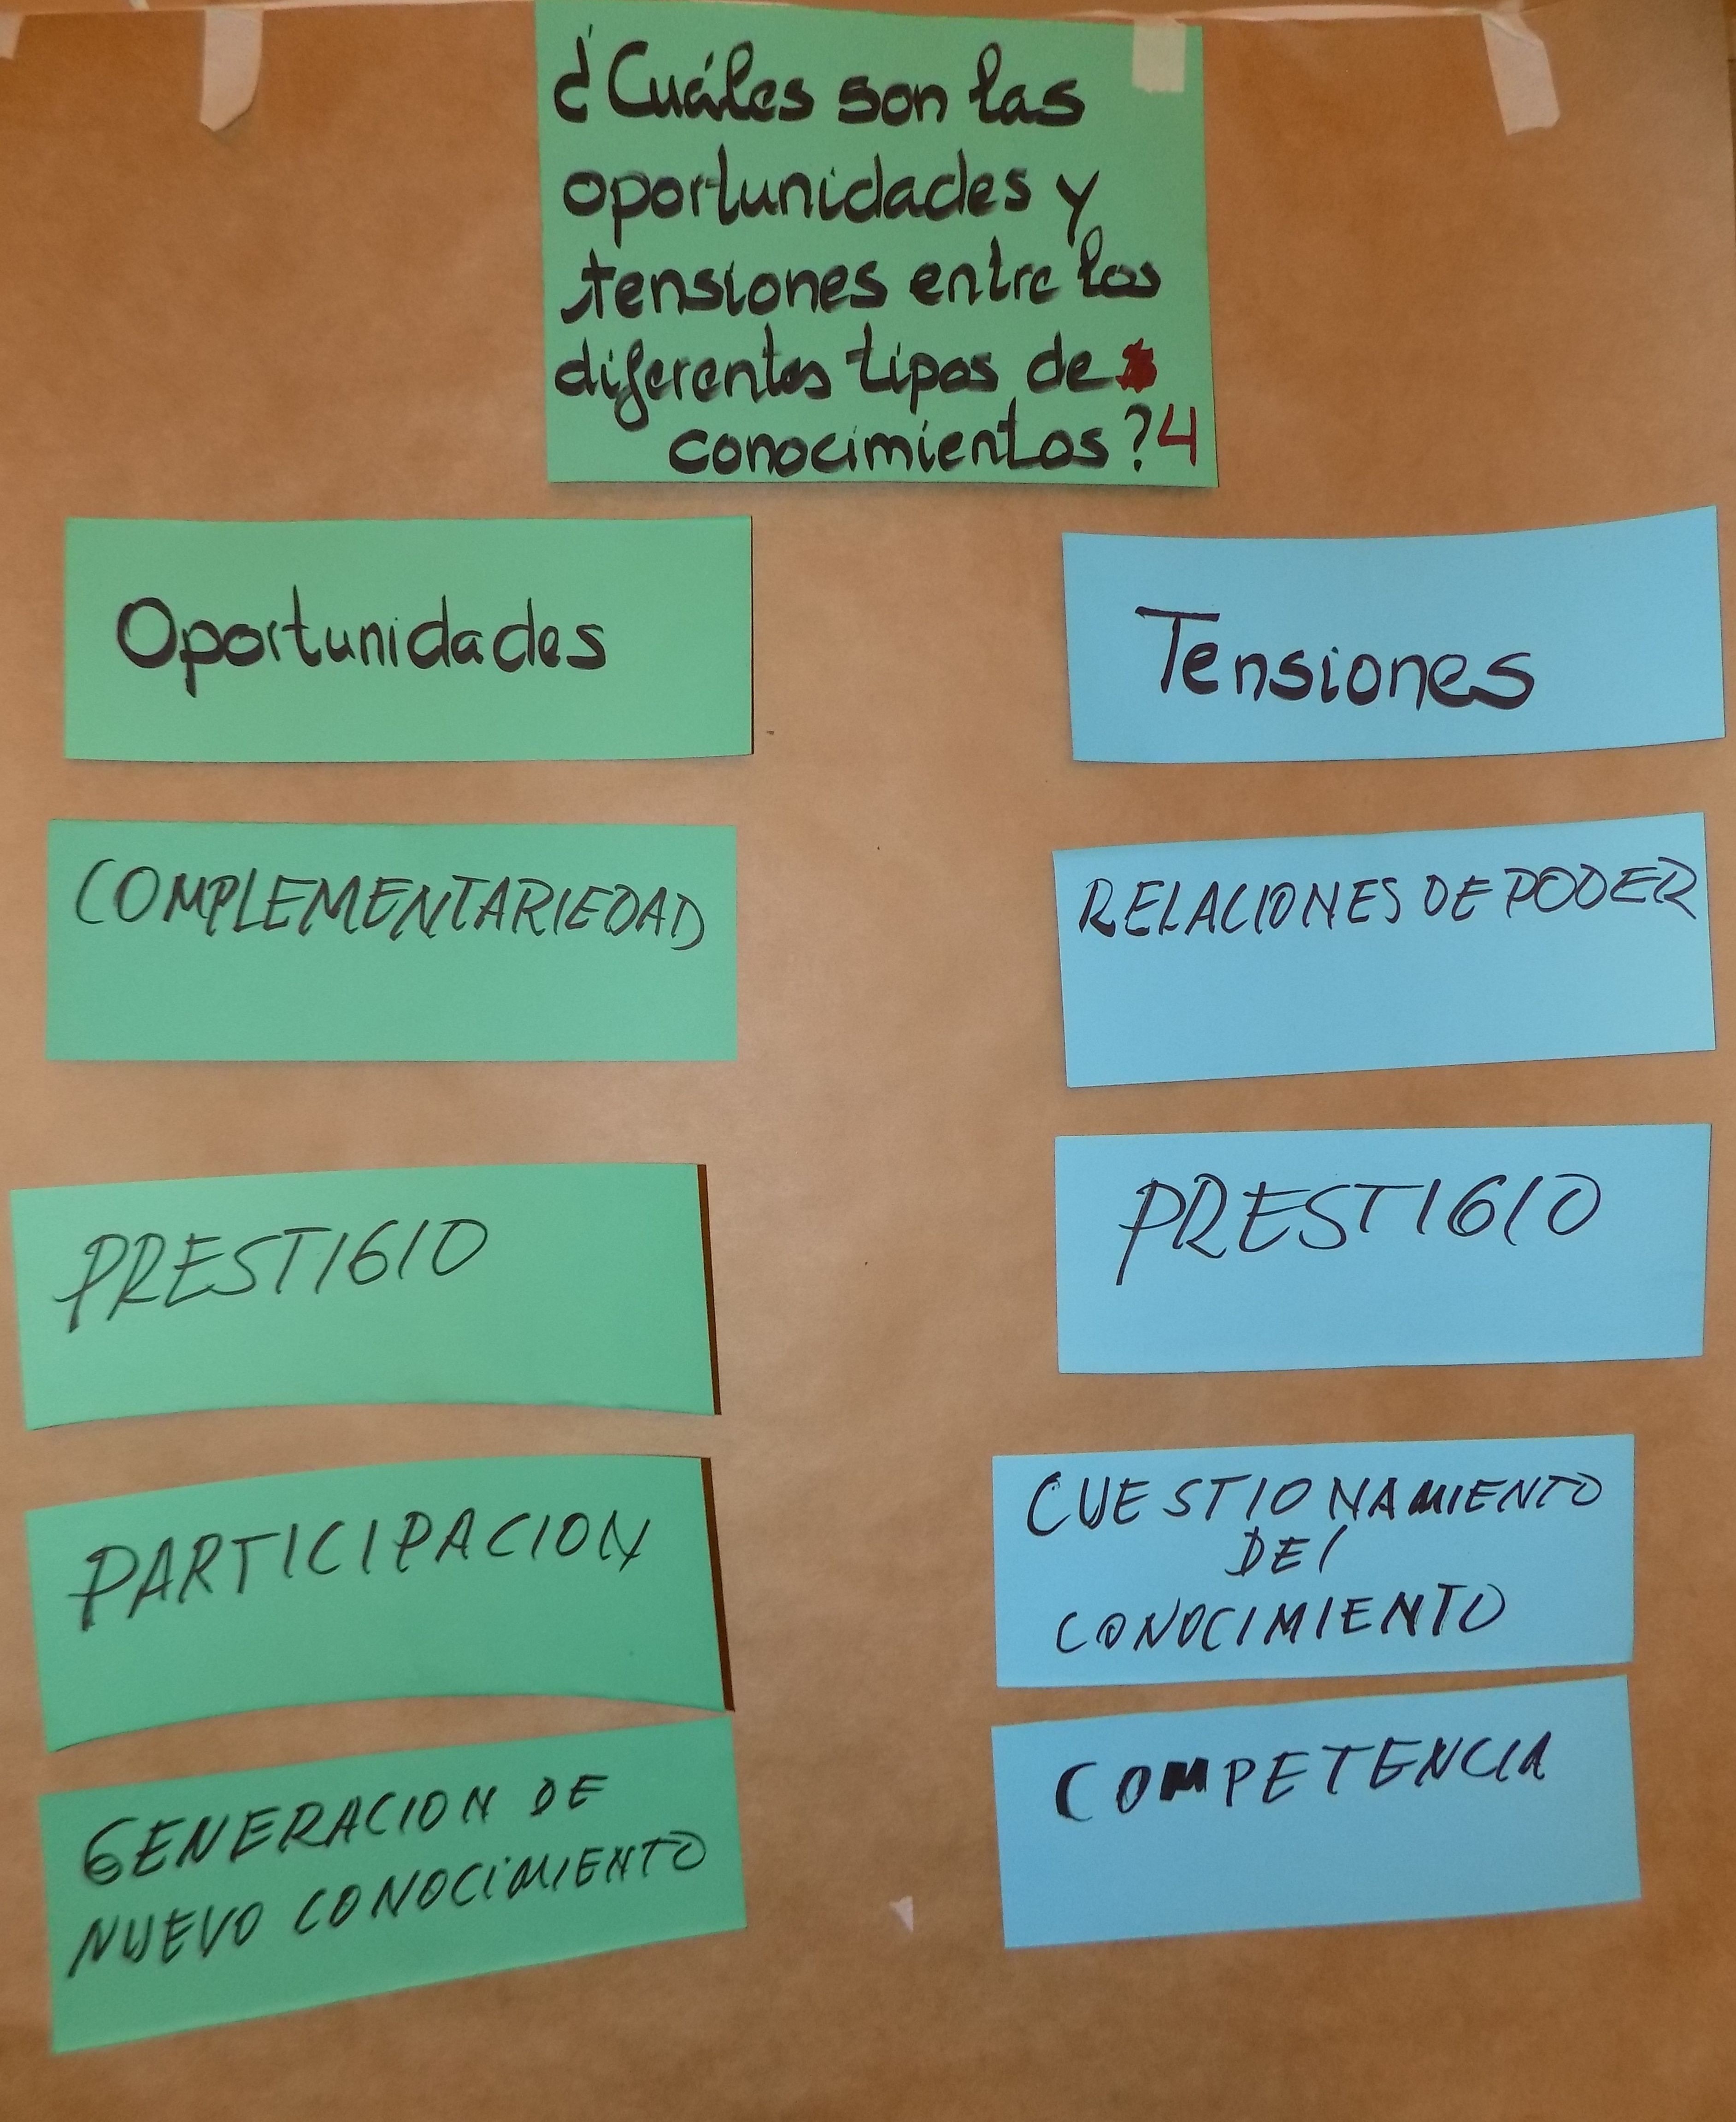 ¿Cuáles son las
oportunidades y
tensiones entre los
diferentes tipos de
conocimientos? 4
Oportunidades
Tensiones
COMPLEMENTARIEDAD
RELACIONES DE PODER
PRESTIGIO
PRESTIGIO
PARTICIPACION
CUESTIONAMIENTO
DEl
CONOCIMIENTO
GENERACION DE
NUEVO CONOCIMIENTO
COMPETENCIA